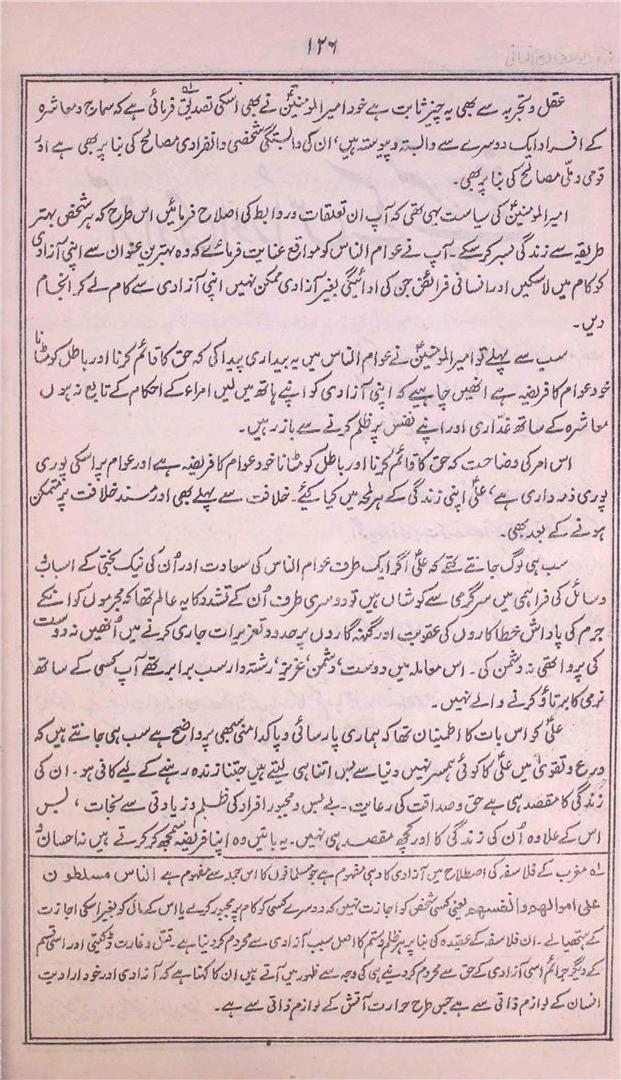 ۱۲۶
عقل و تجربہ سے بھی یہ چیز ثابت ہے خود امیر المومنینؑ نے بھی اسکی تصدیق فرمائی ہے کہ سماج و معاشرہ
کے افراد ایک دوسرے سے وابستہ و پیوستہ ہیں، ان کی وابستگی شخصی و انفرادی مصالح کی بنا پر بھی ہے اور
قومی و ملّی مصالح کی بنا پر بھی۔
امیر المومنینؑ کی سیاست یہی تھی کہ آپ ان تعلقات و روابط کی اصلاح فرمائیں اس طرح کہ ہر شخص بہتر
طریقہ سے زندگی بسر کر سکے۔ آپ نے عوام الناس کو مواقع عنایت فرمائے کہ وہ بہترین عنوان سے اپنی آزادی
کو کام میں لاسکیں اور انسانی فرائض جن کی ادائیگی بغیر آزادی ممکن نہیں اپنی آزادی سے کام لے کر انجام
دیں۔
سب سے پہلے تو امیر المومنینؑ نے عوام الناس میں یہ بیداری پیدا کی کہ حق کا قائم کرنا اور باطل کو مٹانا
خود عوام کا فریضہ ہے انھیں چاہیے کہ اپنی آزادی کو اپنے ہاتھ میں لیں امراء کے احکام کے تابع نہ ہوں
معاشرہ کے ساتھ غدّاری اور اپنے نفس پر ظلم کرنے سے باز رہیں۔
اس امر کی وضاحت کہ حق کا قائم کرنا اور باطل کو مٹانا خود عوام کا فریضہ ہے اور عوام پر اسکی پوری
پوری ذمہ داری ہے، علیؑ اپنی زندگی کے ہر لمحہ میں کیا کیئے۔ خلافت سے پہلے بھی اور مسند خلافت پر متمکن
ہونے کے بعد بھی۔
سب ہی لوگ جانتے تھے کہ علیؑ اگر ایک طرف عوام الناس کی سعادت اور اُن کی نیک بختی کے اسباب
وسائل کی فراہمی میں سرگرمی سے کوشاں ہیں تو دوسری طرف اُن کے تشدد کا یہ عالم تھا کہ مجرموں کو انکے
جرم کی پاداش خطا کاروں کی عقوبت اور گنہگاروں پر حدود و تعزیرات جاری کرنے میں اُنھیں نہ دوست
کی پروا تھی نہ دشمن کی۔ اس معاملہ میں دوست، دشمن، عزیز، رشتہ دار سب برابر تھے آپ کسی کے ساتھ
نرمی کا برتاؤ کرنے والے نہیں۔
علیؑ کو اس بات کا اطمینان تھا کہ ہماری پارسائی و پاکدامنی سبھی پر واضح ہے سب ہی جانتے ہیں کہ
ورع و تقویٰ میں علیؑ کا کوئی ہمسر نہیں دنیا سے بس اتنا ہی لیتے ہیں جتنا زندہ رہنے کے لیے کافی ہو۔ ان کی
زندگی کا مقصد ہی ہے حق و صداقت کی رعایت۔ بے بس و مجبور افراد کی ظلم و زیادتی سے نجات، بس
اس کے علاوہ اُن کی زندگی کا اور کچھ مقصد ہی نہیں۔ یہ باتیں وہ اپنا فریضہ سمجھ کر کرتے ہیں نہ احسان و
لہ مغرب کے فلاسفہ کی اصطلاح میں آزادی کا وہی مفہوم ہے جو مسلمانوں کا اس جملہ سے مفہوم ہے الناس مسلطون
علی اموالھم وانفسھم یعنی کسی شخص کو اجازت نہیں کہ دوسرے کسی کو کام پر مجبور کرے یا اس کے مال کو بغیر اسکی اجازت
کے ہتھیالے۔ ان فلاسفہ کے عقیدہ کی بنا پر ہر ظلم و ستم کا اصل سبب آزادی سے محروم کر دینا ہے۔ قتل و غارت ڈکیتی اور اسی قسم
کے دیگر جرائم اسی آزادی کے حق سے محروم کر دینے ہی کی وجہ سے ظہور میں آتے ہیں ان کا کہنا ہے کہ آزادی اور خود ارادیت
انسان کے لوازم ذاتی سے ہے جس طرح حرارت آتش کے لوازم ذاتی سے ہے۔